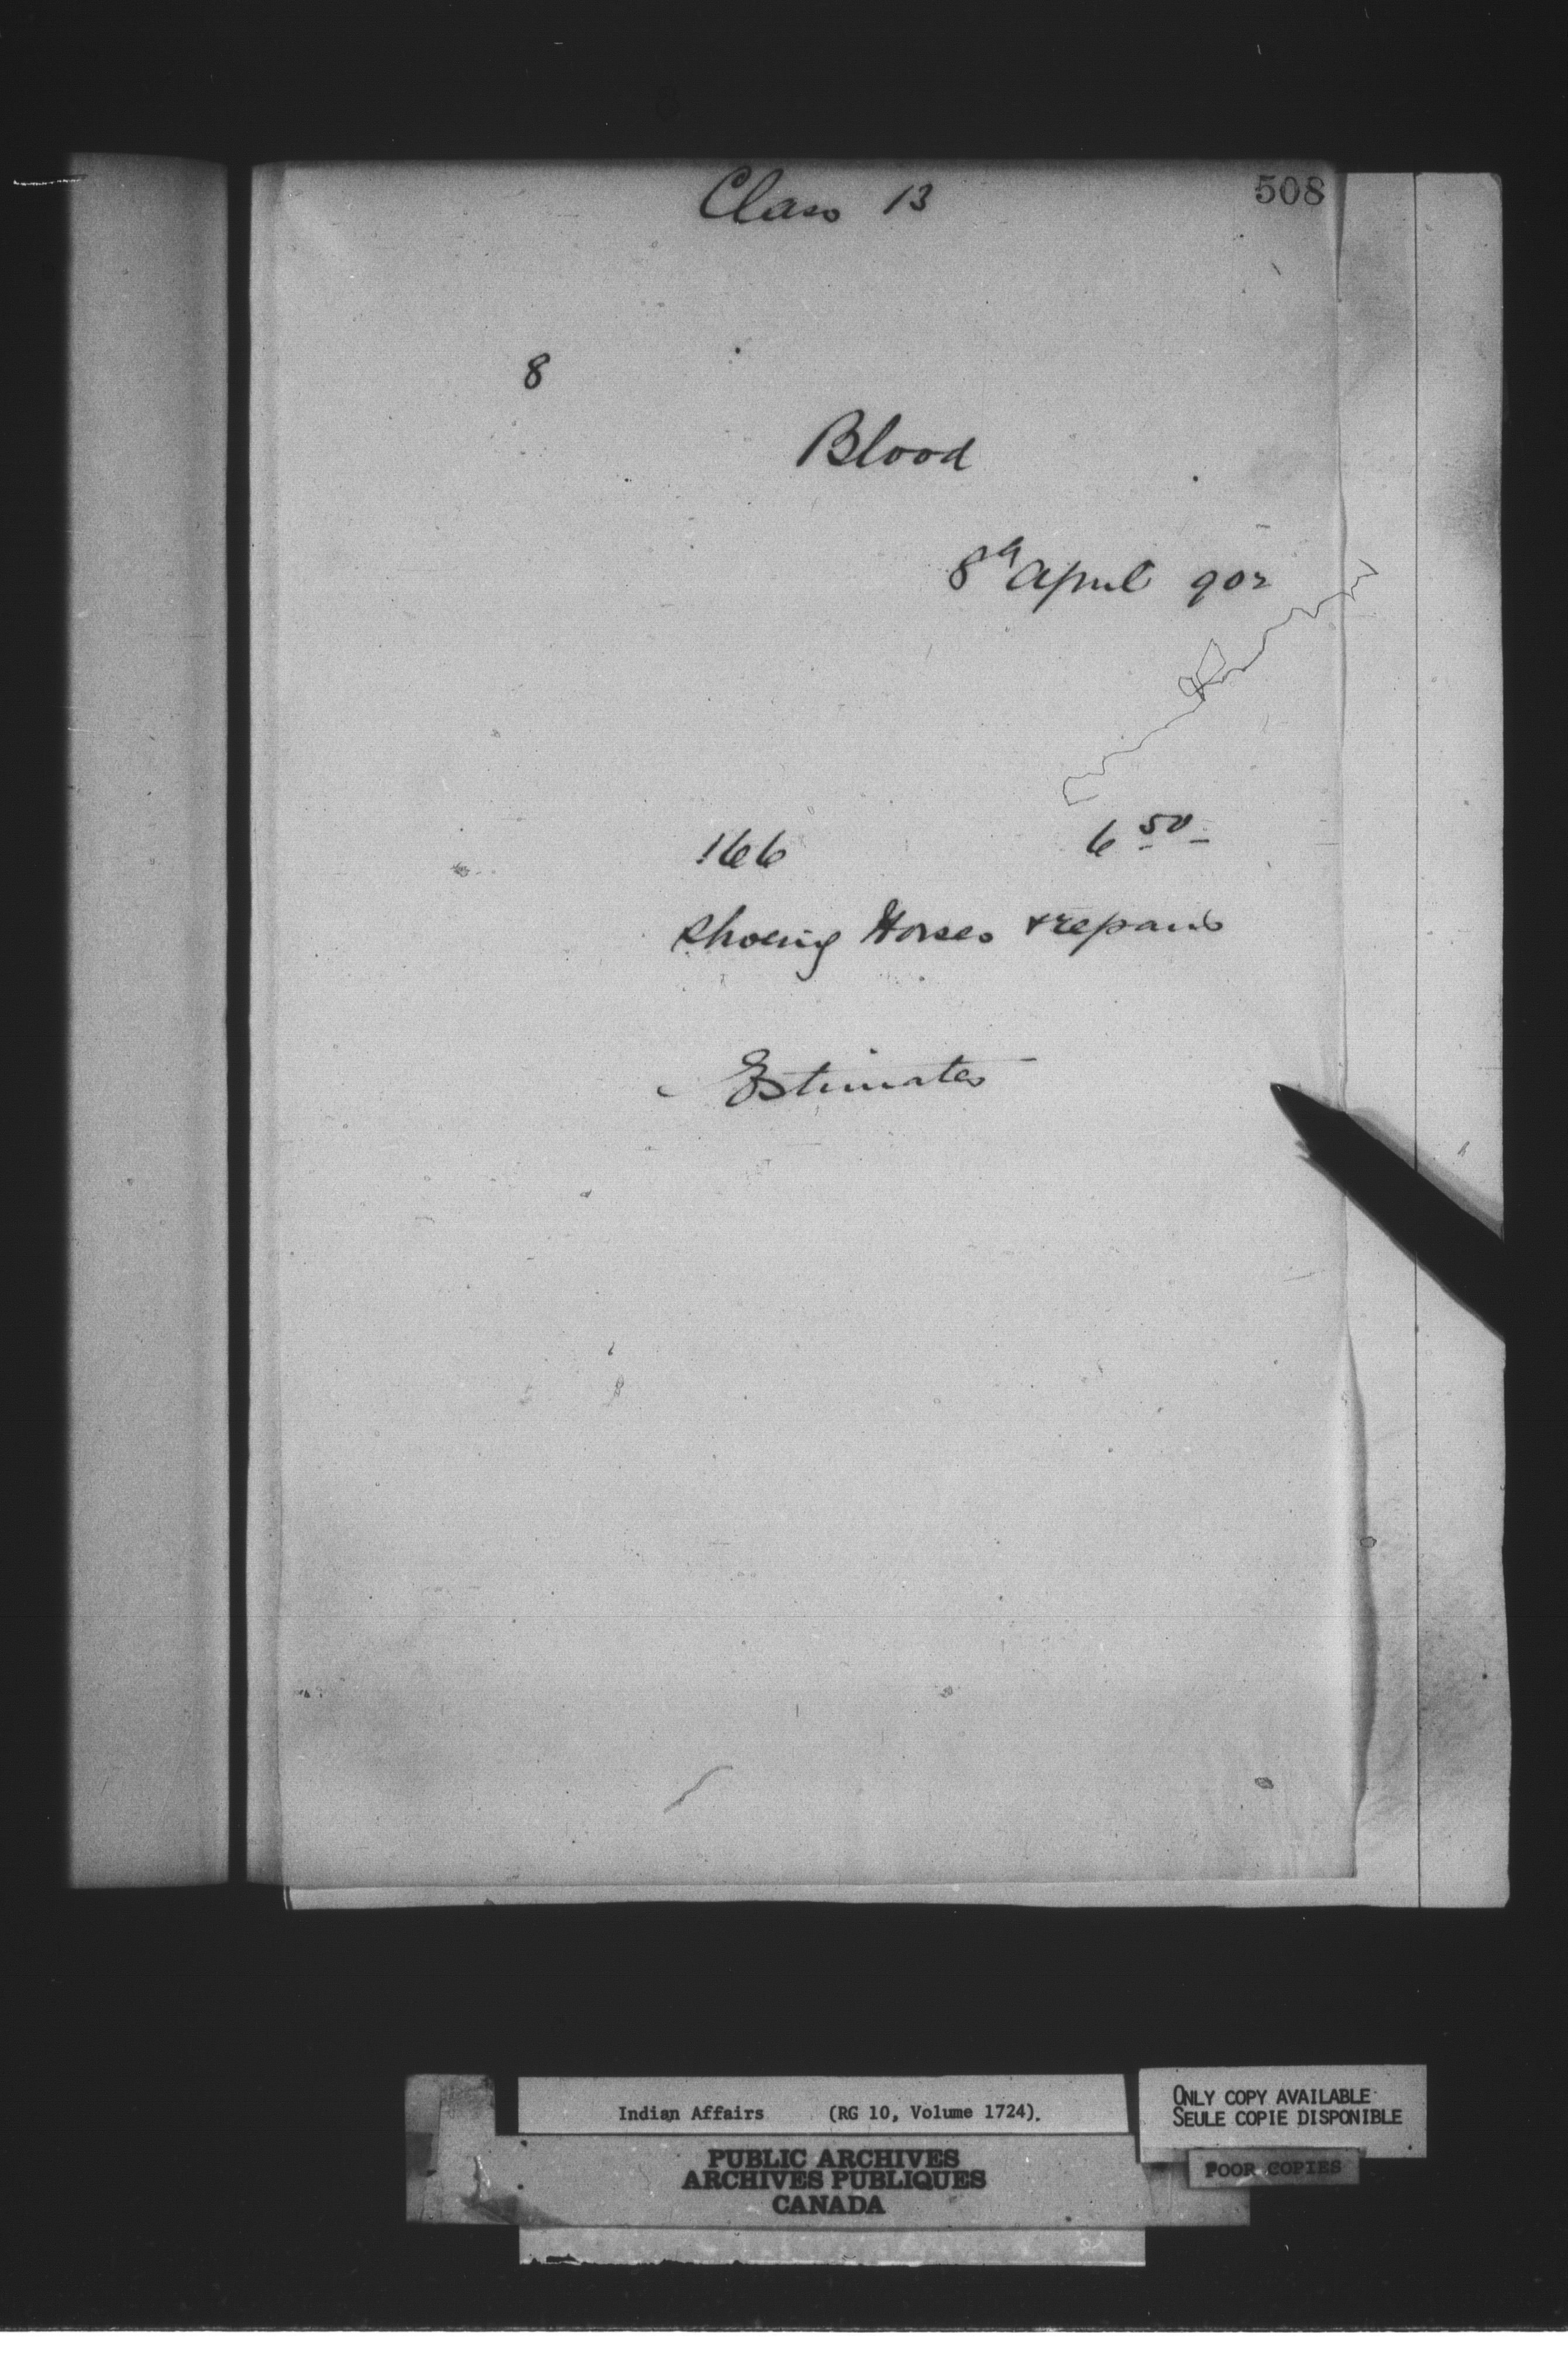 Class 13
508
8
Blood
8th April 902
166 6 50
Shoeing Horses & repairs
Estimates
Indian Affairs (RG 10, Volume 1724).
PUBLIC ARCHIVES
ARCHIVES PUBLIQUES
CANADA
ONLY COPY AVAILABLE
SEULE COPIE DISPONIBLE
POOR COPIES